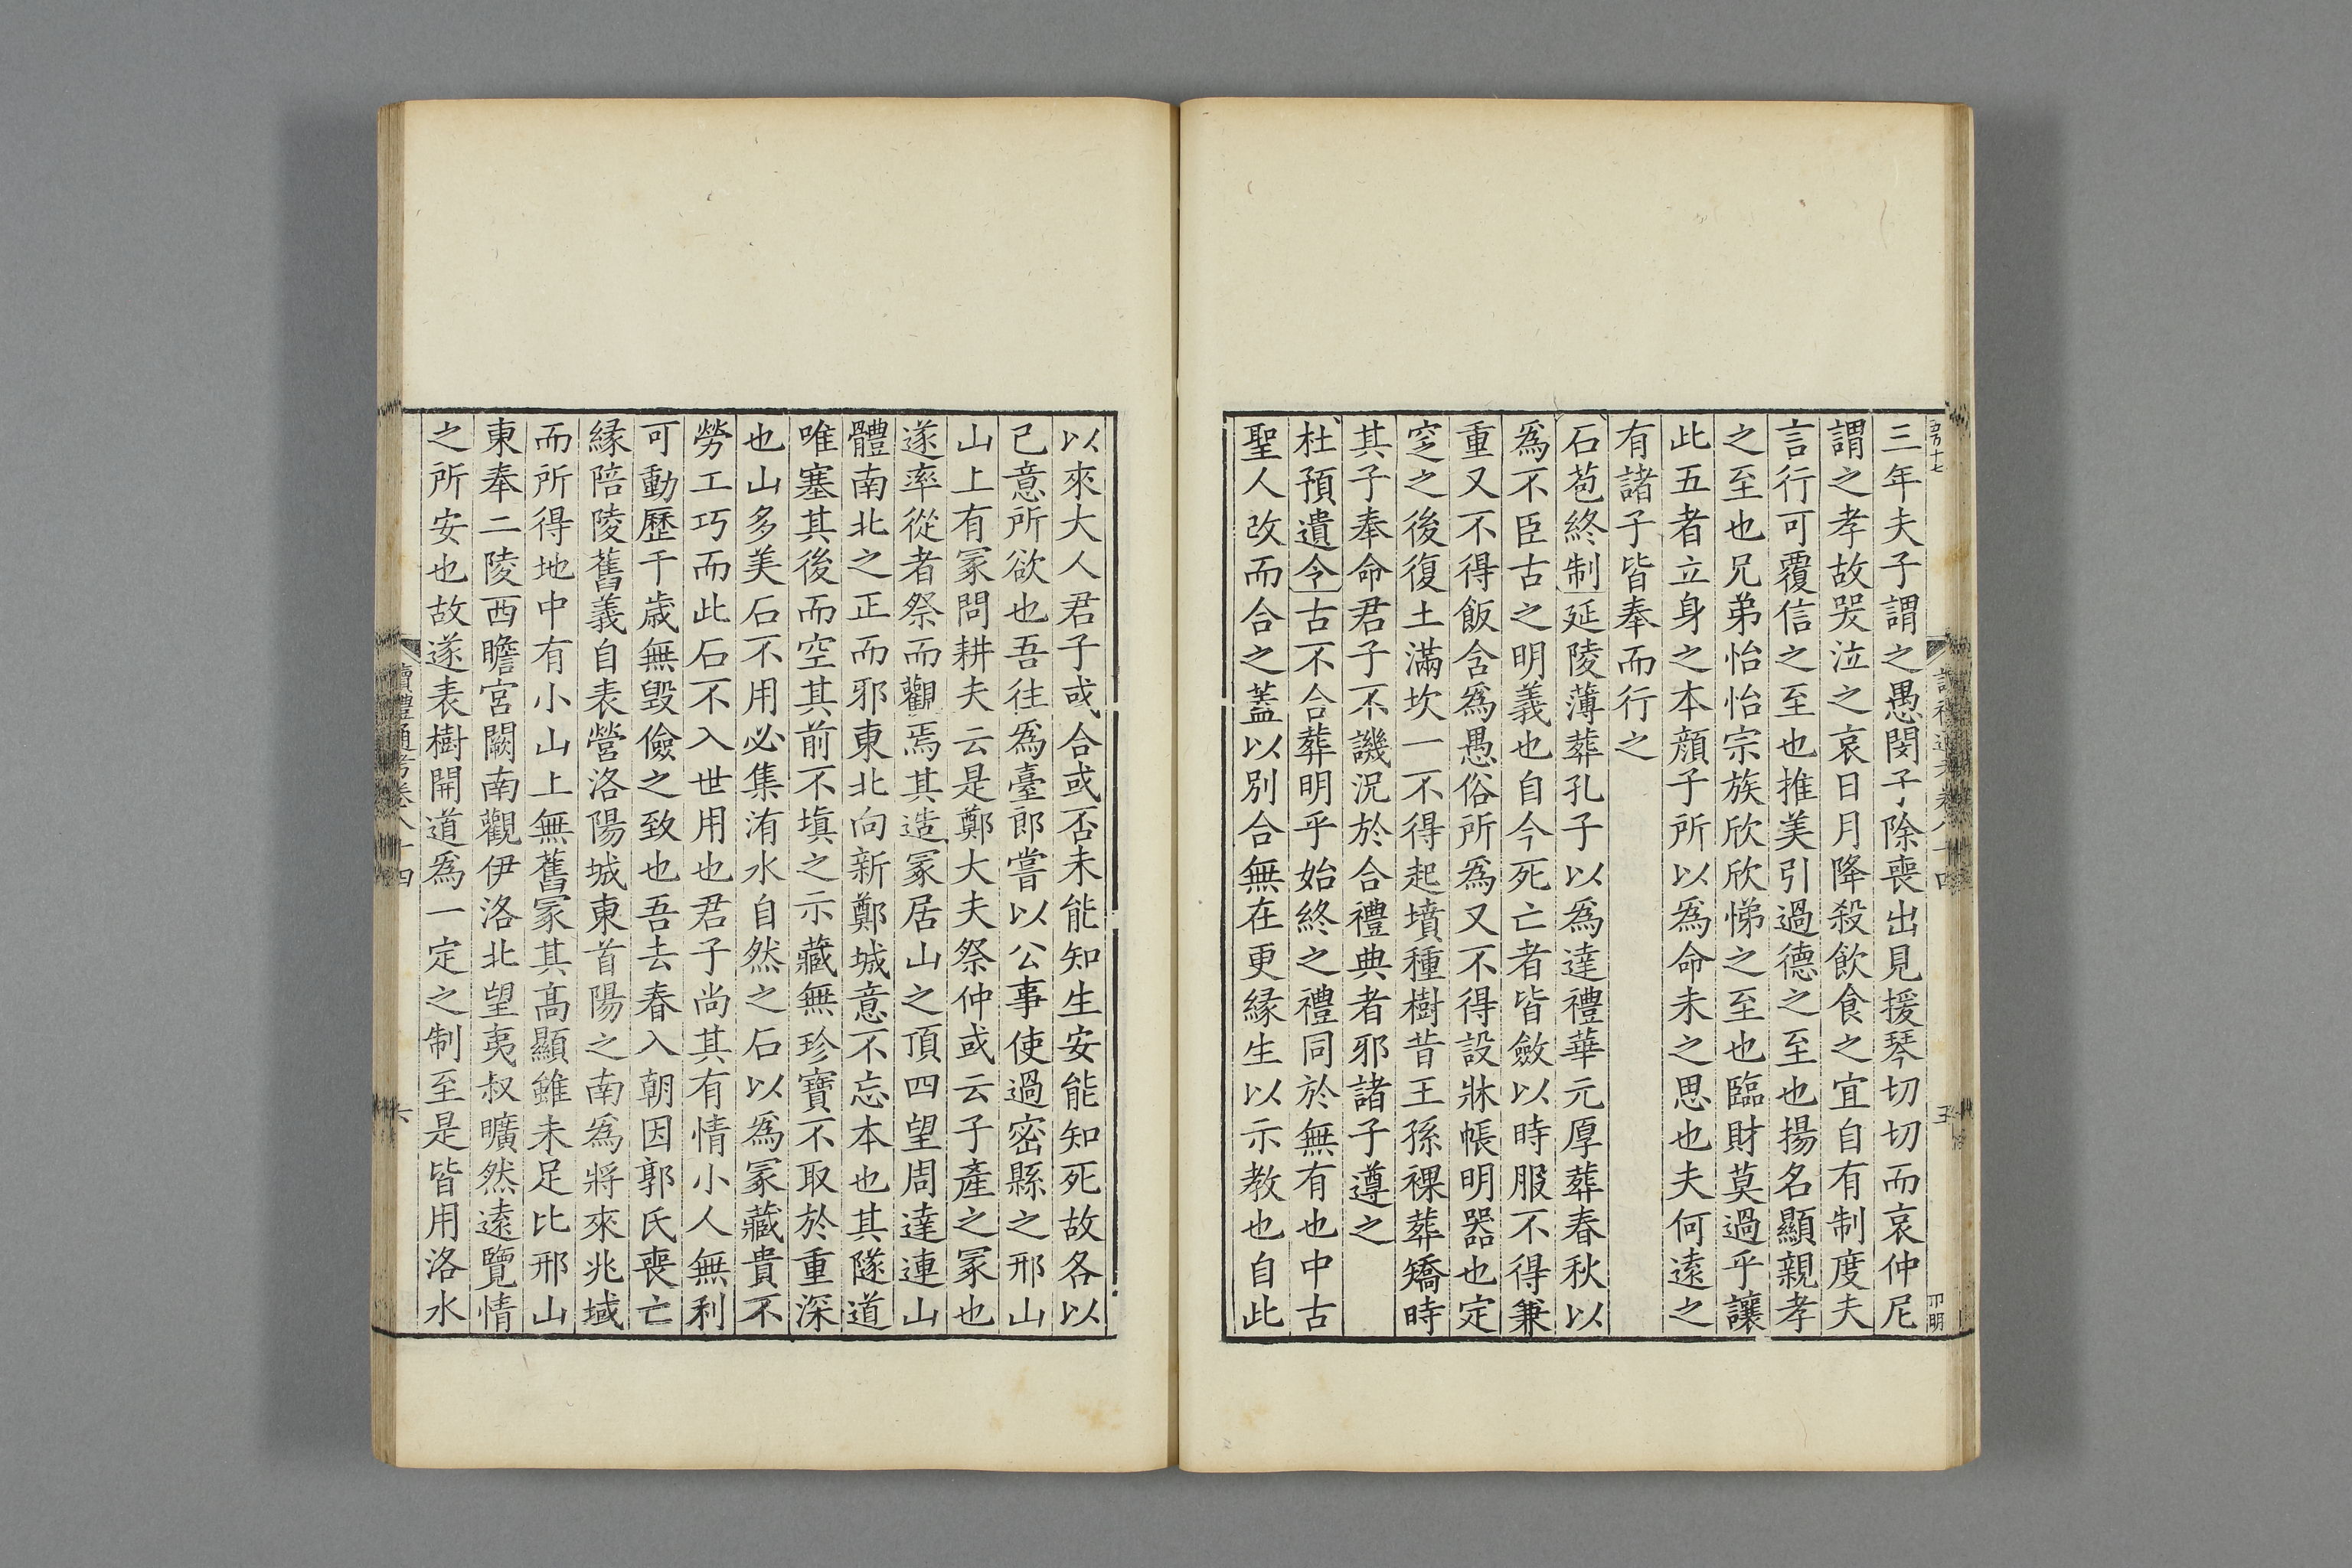 三年夫子謂之愚閔子除喪出見援琴切切而哀仲尼
謂之孝故哭泣之哀日月降殺飲食之宜自有制度夫
言行可覆信之至也推美引過德之至也揚名顯親孝
之至也兄弟怡怡宗族欣欣悌之至也臨財莫過乎讓
此五者立身之本顔子所以爲命未之思也夫何遠之
有諸子皆奉而行之
石苞終制延陵薄葬孔子以爲達禮華元厚葬春秋以
爲不臣古之明義也自今死亡者皆斂以時服不得兼
重又不得飯含爲愚俗所爲又不得設牀帳明器也定
窆之後復土滿坎一不得起墳種樹昔王孫裸葬矯時
其子奉命君子不譏況於合禮典者邪諸子遵之
杜預遺令古不合葬明乎始終之禮同於無有也中古
聖人改而合之蓋以別合無在更緣生以示教也自此
以來大人君子或合或否未能知生安能知死故各以
己意所欲也吾往爲臺郎嘗以公事使過密縣之邢山
山上有冢問耕夫云是鄭大夫祭仲或云子產之冢也
遂率從者祭而觀焉其造冢居山之頂四望周達連山
體南北之正而邪東北向新鄭城意不忘本也其隧道
唯塞其後而空其前不塡之示藏無珍寶不取於重深
也山多美石不用必集洧水自然之石以爲冢藏貴不
勞工巧而此石不入世用也君子尚其有情小人無利
可動歷千歳無毀儉之致也吾去春入朝因郭氏喪亡
緣陪陵舊義自表營洛陽城東首陽之南爲將來兆域
而所得地中有小山上無舊冢其高顯雖未足比邢山
東奉二陵西瞻宮闕南觀伊洛北望夷叔曠然遠覽情
之所安也故遂表樹開道爲一定之制至是皆用洛水
讀禮通考卷八十四
六